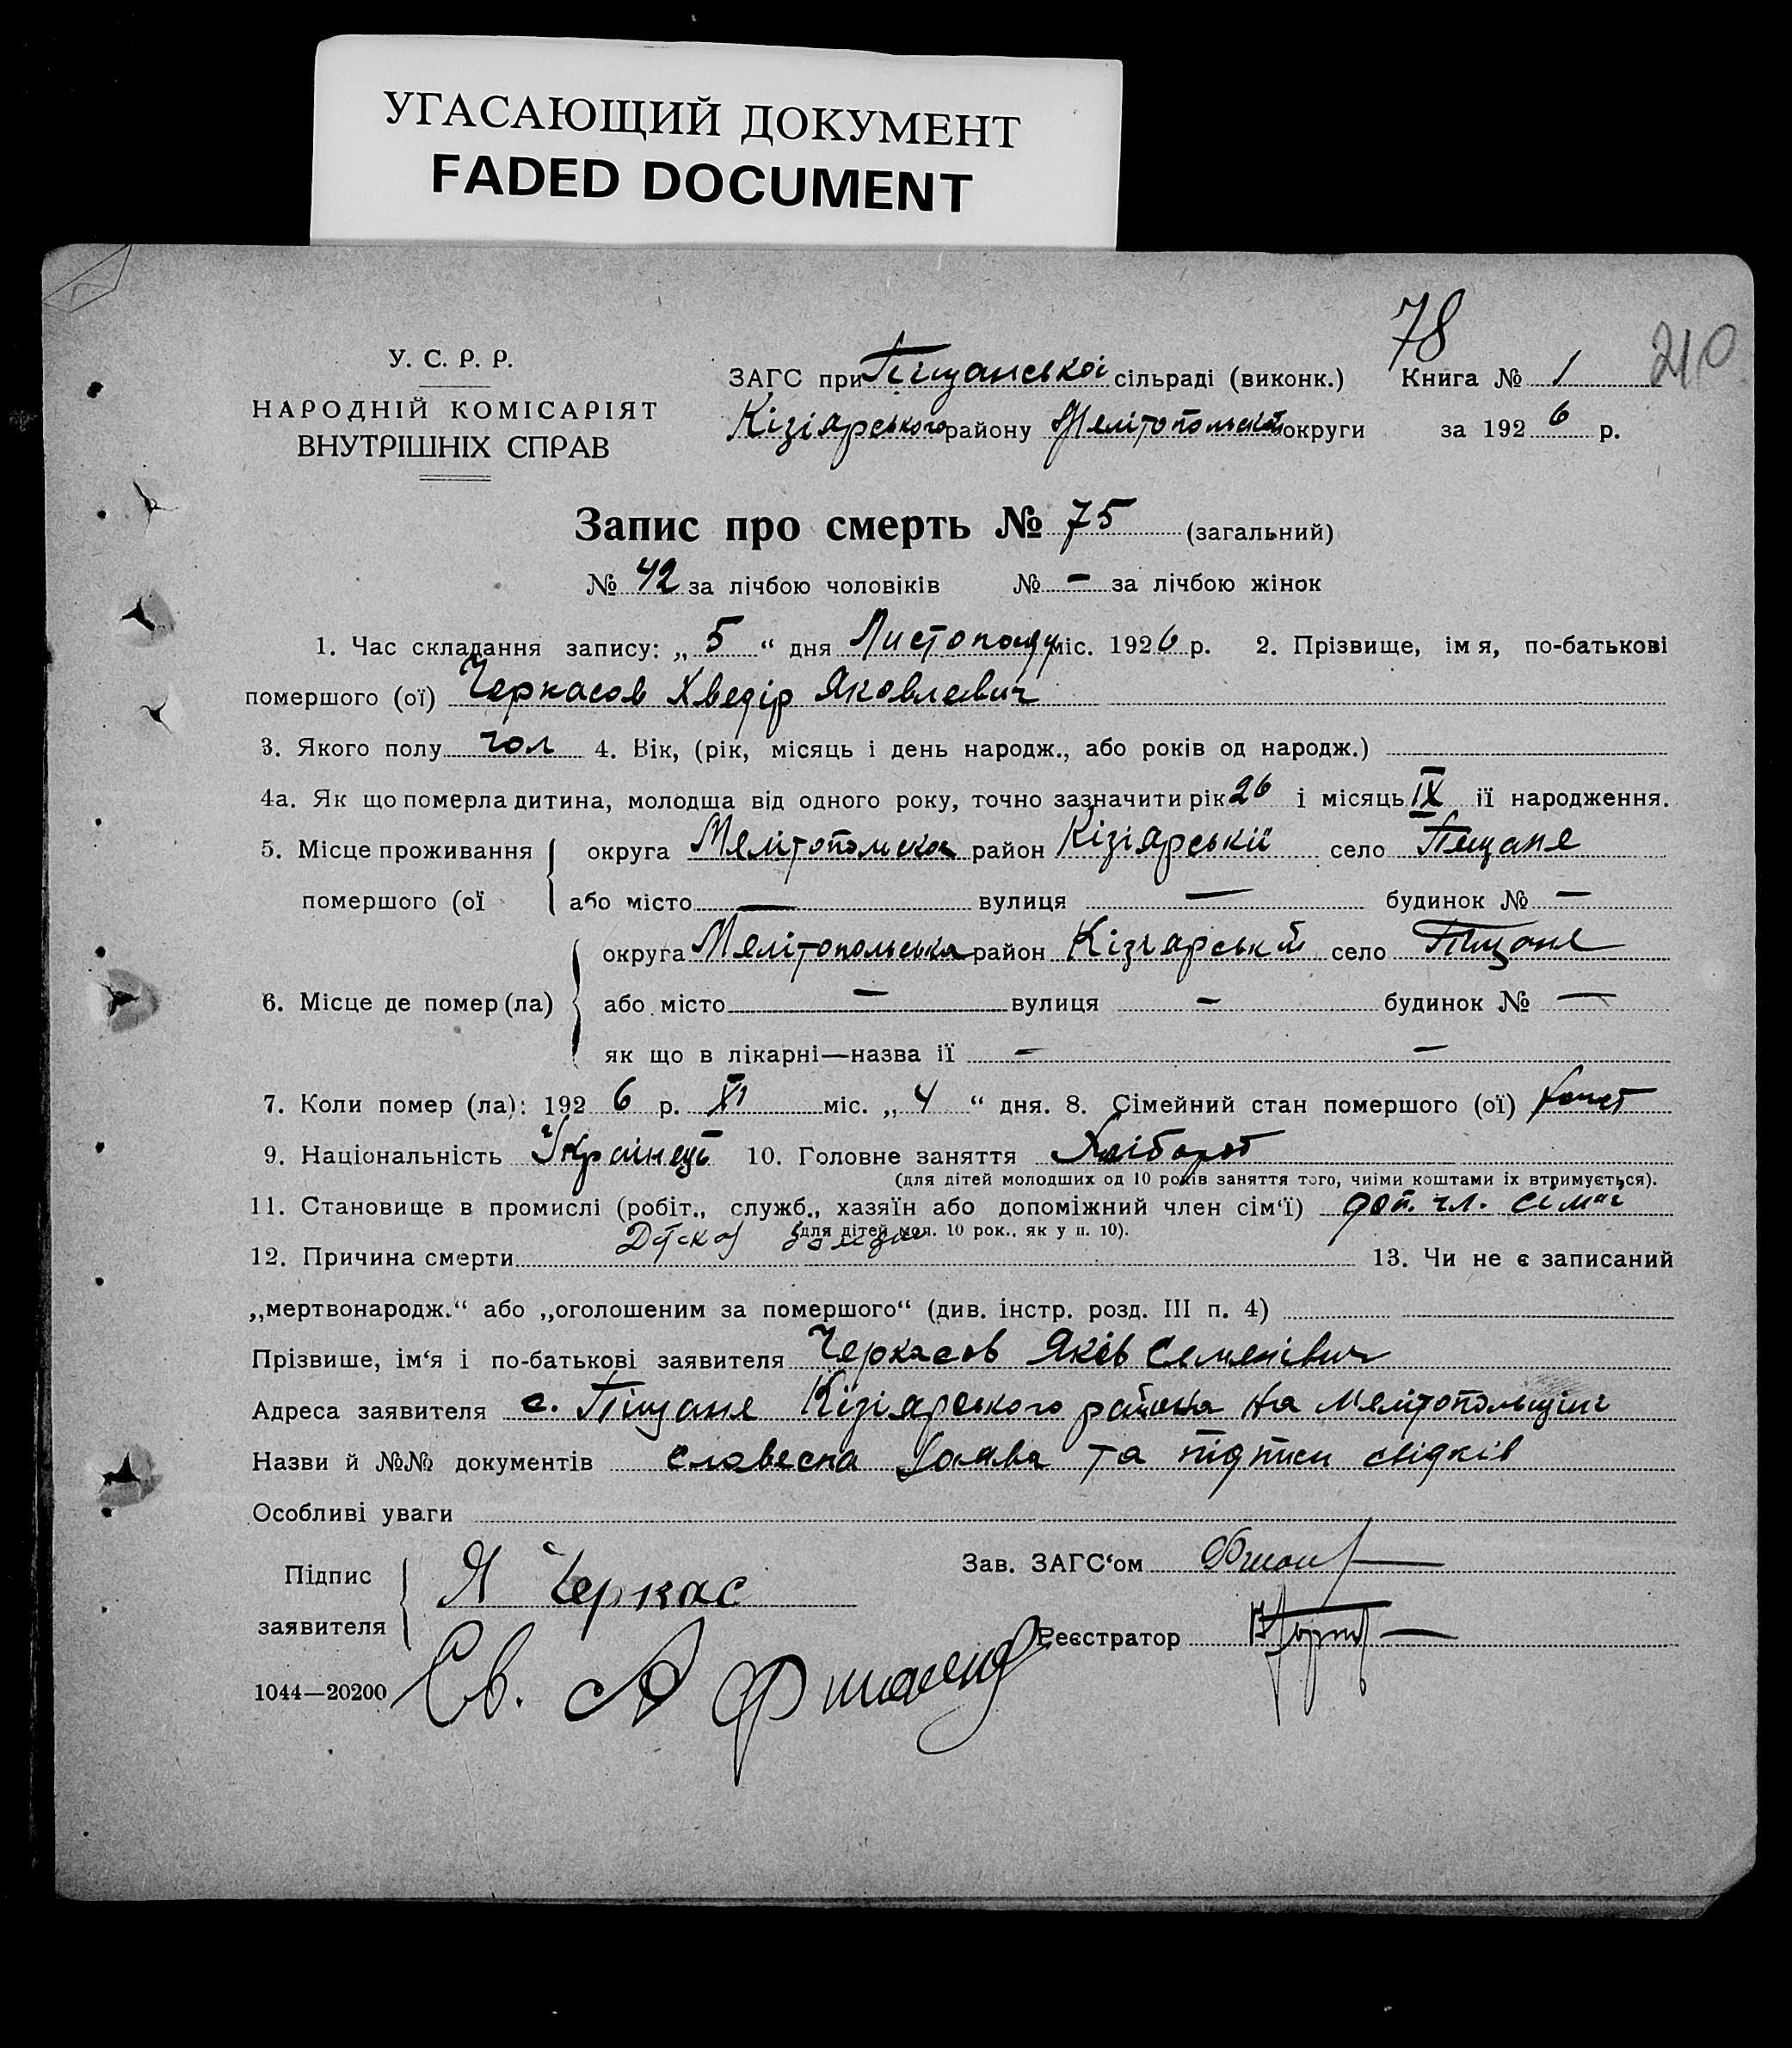 УГАСАЮЩИЙ ДОКУМЕНТ
FADED DOCUMENT
78
210
У. С. Р. Р.
НАРОДНІЙ КОМІСАРІЯТ
ВНУТРІШНІХ СПРАВ
ЗАГС при Піщанської сільраді (виконк.) Книга № 1
Кізіярського району Мелітопольської округи за 1926 р.
Запис про смерть № 75 (загальний)
№ 42 за лічбою чоловіків № — за лічбою жінок
1. Час складання запису: „ 5 “ дня Листопаду міс. 1926 р. 2. Прізвище, ім я, по-батькові
помершого (ої) Черкасов Хведір Яковлевич
3. Якого полу чол 4. Вік, (рік, місяць і день народж., або років од народж.)
4а. Як що померла дитина, молодша від одного року, точно зазначити рік 26 і місяць IX ії народження.
5. Місце проживання округа Мелітопольска район Кізіярській село Піщане
помершого (ої або місто — вулиця — будинок № —
округа Мелітопольська район Кізіярській село Піщане
6. Місце де помер (ла) або місто — вулиця — будинок № —
як що в лікарні—назва ії — —
7. Коли помер (ла): 1926 р. XI міс. „ 4 “ дня. 8. Сімейний стан помершого (ої)
9. Національність Українець 10. Головне заняття Хлібороб
(для дітей молодших од 10 років заняття того, чиїми коштами їх втримується).
11. Становище в промислі (робіт., служб., хазяїн або допоміжний член сім‘ї) доп. чл. сімьї
(для дітей мол. 10 рок., як у п. 10).
12. Причина смерти 13. Чи не є записаний
„мертвонародж.“ або „оголошеним за помершого“ (див. інстр. розд. III п. 4)
Прізвише, ім‘я і по-батькові заявителя Черкасов Яків Семенівич
Адреса заявителя с. Піщане Кізіярського района на Мелітопольщіні
Назви й №№ документів словесна заява та підписи свідків
Особливі уваги
Підпис
заявителя Я Черкас
Зав. ЗАГС‘ом
Реєстратор
1044—20200 Св. А